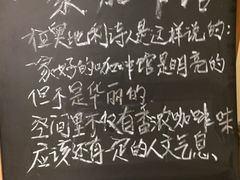 奥地利诗人是这样说的:
一家好的咖啡馆是明亮的
但不是华丽的
空间里不仅有香浓咖啡味
应该还有一定的人文气息、